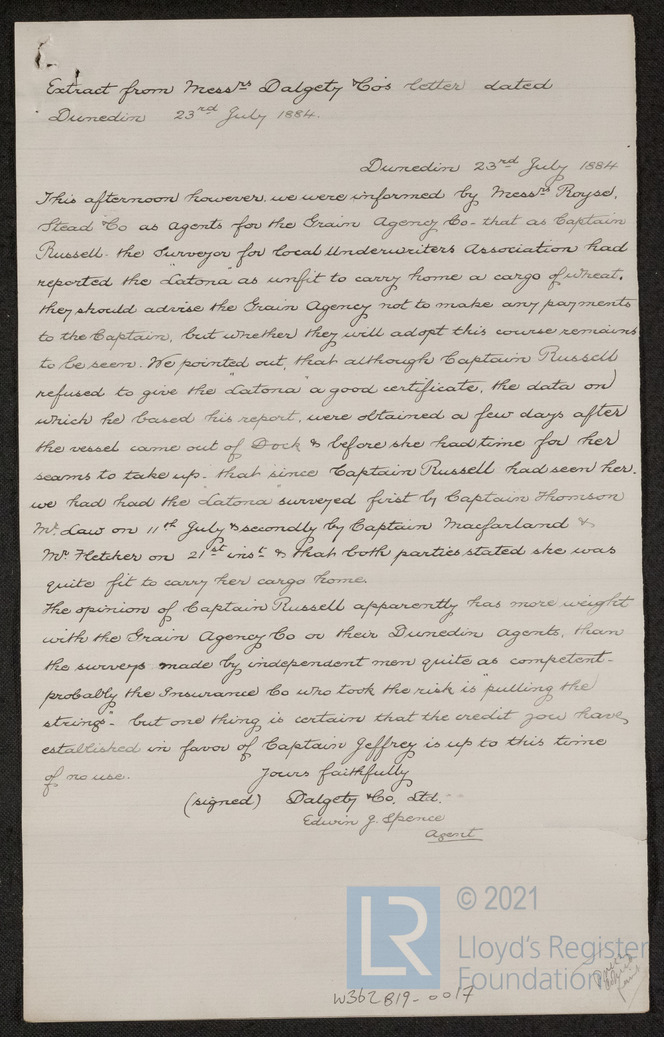 Extract from Messrs Dalgety & Co's letter dated
Dunedin 23rd July 1884.
Dunedin 23rd July 1884
This afternoon however, we were informed by Messrs Royse,
Stead & Co as agents for the Grain Agency Co - that as Captain
Russell. the Surveyor for local Underwriters Association had
reported the "Latona" as unfit to carry home a cargo of wheat,
they should advise the Grain Agency not to make any payments
to the Captain, but whether they will adopt this course remains
to be seen. We pointed out, that although Captain Russell
refused to give the "Latona" a good certificate, the data on
which he based his report, were obtained a few days after
the vessel came out of Dock & before she had time for her
seams to take up - that since Captain Russell had seen her.
we had had the "Latona" surveyed first by Captain Thomson
Mr. Law on 11th July & secondly by Captain Macfarland &
Mr. Fletcher on 21st inst & that both parties stated she was
quite fit to carry her cargo home.
The opinion of Captain Russell apparently has more weight
with the Grain Agency Co or their Dunedin Agents, than
the surveys made by independent men quite as competent -
probably the Insurance Co who took the risk is "pulling the
strings" - but one thing is certain that the credit you have
established in favor of Captain Jeffrey is up to this time
of no use.
Yours faithfully
(signed) Dalgety & Co, Ltd.
Edwin J. Spence
Agent
LR
© 2021
Lloyd's Register
Foundation
W362 819-0017